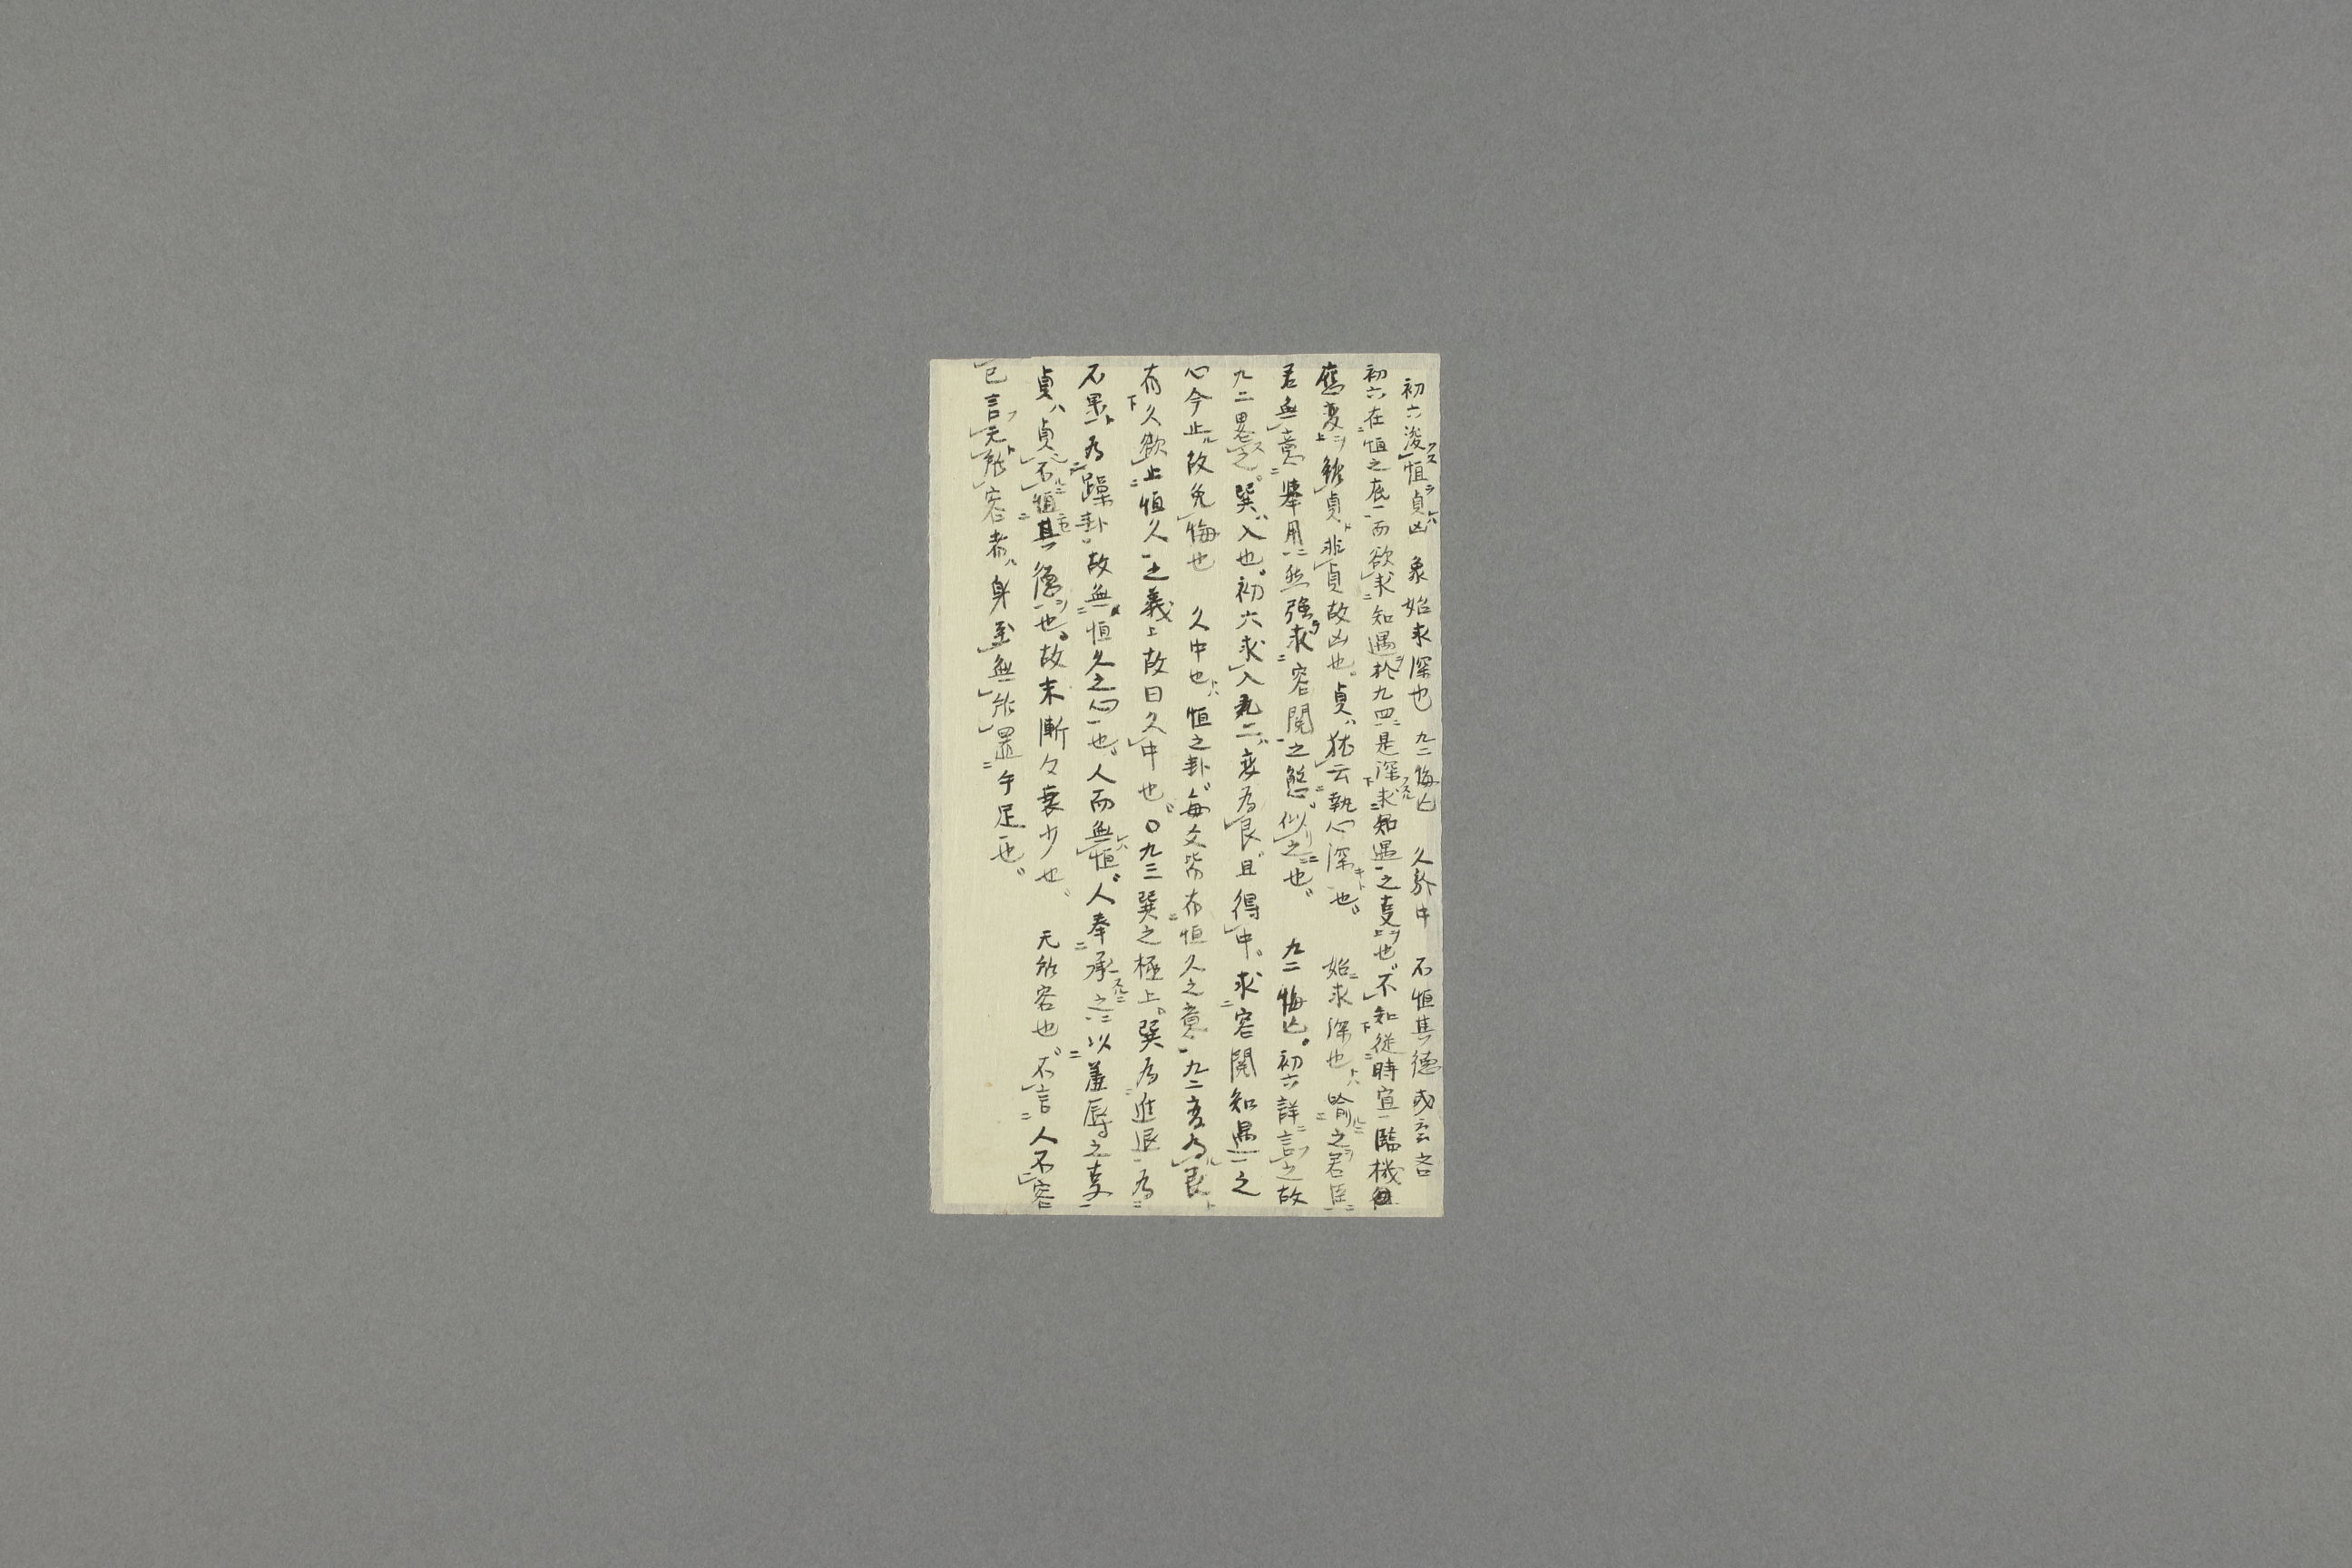 初六浚恒貞凶 象始求深也 九二悔亡 久於中 不恒其德或云吝
初六在恒之底而欲求知遇於九四是深求知遇之㕝也不知從時宜臨機
應変雖貞非貞故凶也貞ハ猶云執心深也 始求深也トハ喻之君臣
君無意擧用然強求容閱之態似之也 九二悔亡初六詳言之故
九二畧之巽ハ入也初六求入九二ハ変為艮且得中求容閱知遇之
心今止故免悔也 久中也トハ恒之卦每爻皆有恒久之意九二変為艮
有久欲止恒久之義故曰久中也〇九三巽之極上巽為進退為
不果為躁卦故無恒久之心也人而無恒人奉承之以羞辱之㕝
貞ハ貞不恒其德也故末漸々衰少也 无所容也不言人不容
己言无所容者ハ身至無所置手足也